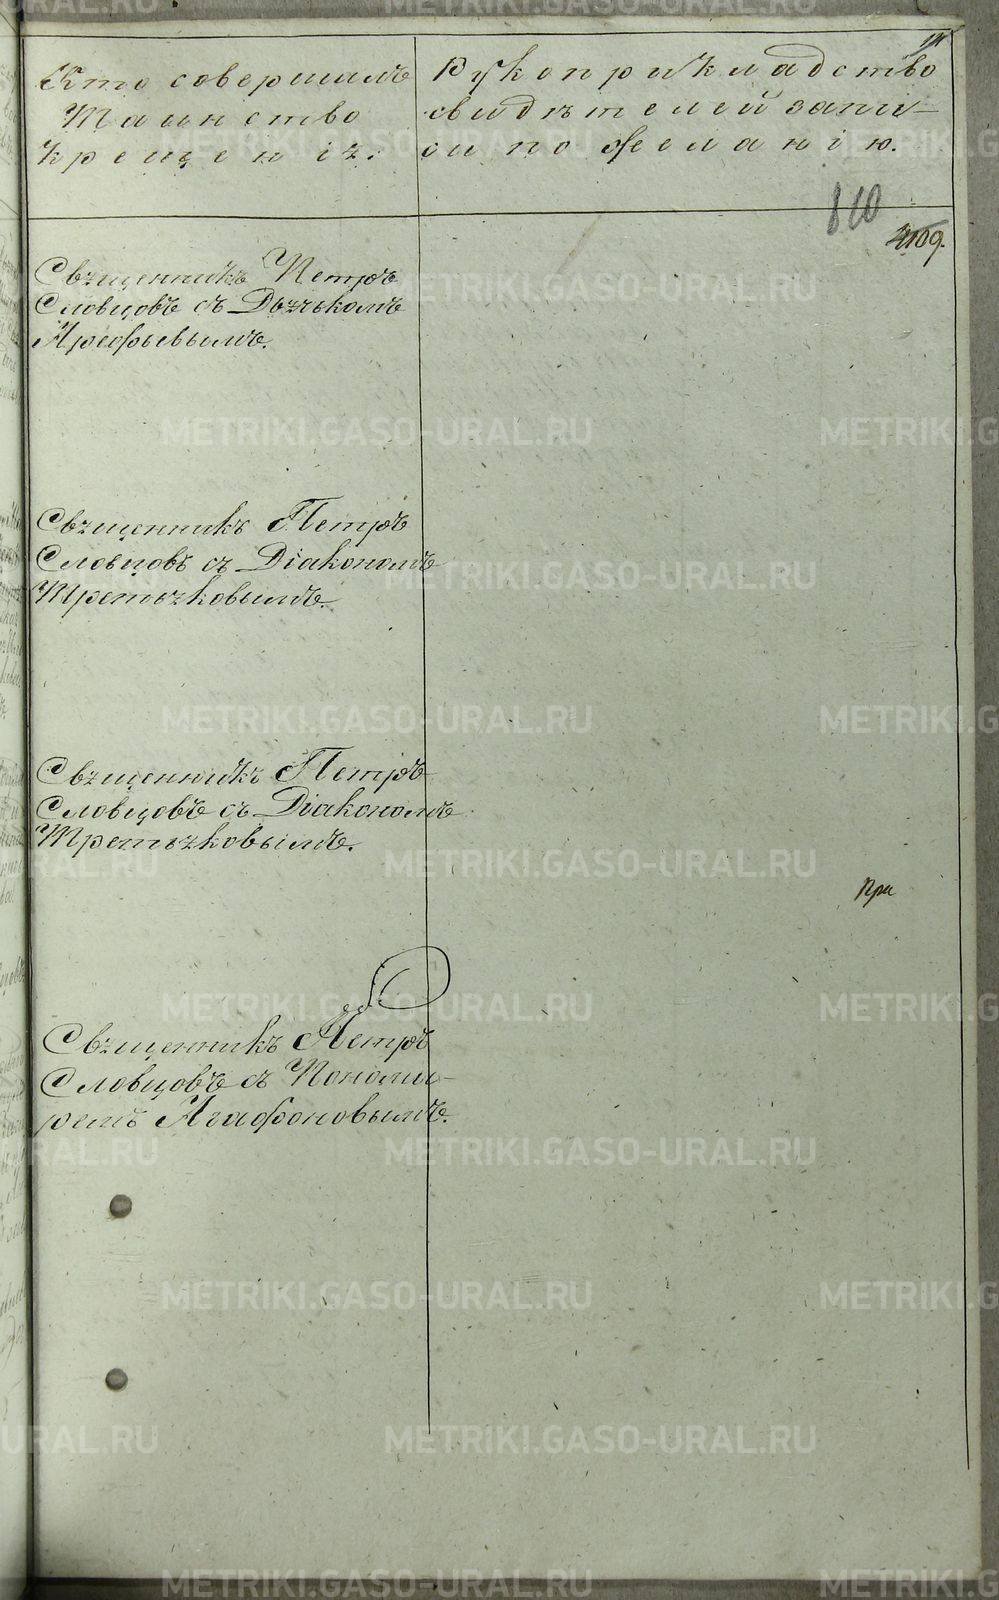 Кто совершалъ
Таинство
крещенія.
Рукоприкладство
свидѣтелей запи-
си по желанію.
810
4109.
Священникъ Петръ
Словцовъ съ Дьячькомъ
Арефьевымъ.
Священникъ Петръ
Словцовъ съ Діакономъ
Третьяковымъ.
Священникъ Петръ
Словцовъ съ Діакономъ
Третьяковымъ.
При
Священникъ Петръ
Словцовъ съ Понома-
ремъ Агафоновымъ.
METRIKI.GASO-URAL.RU